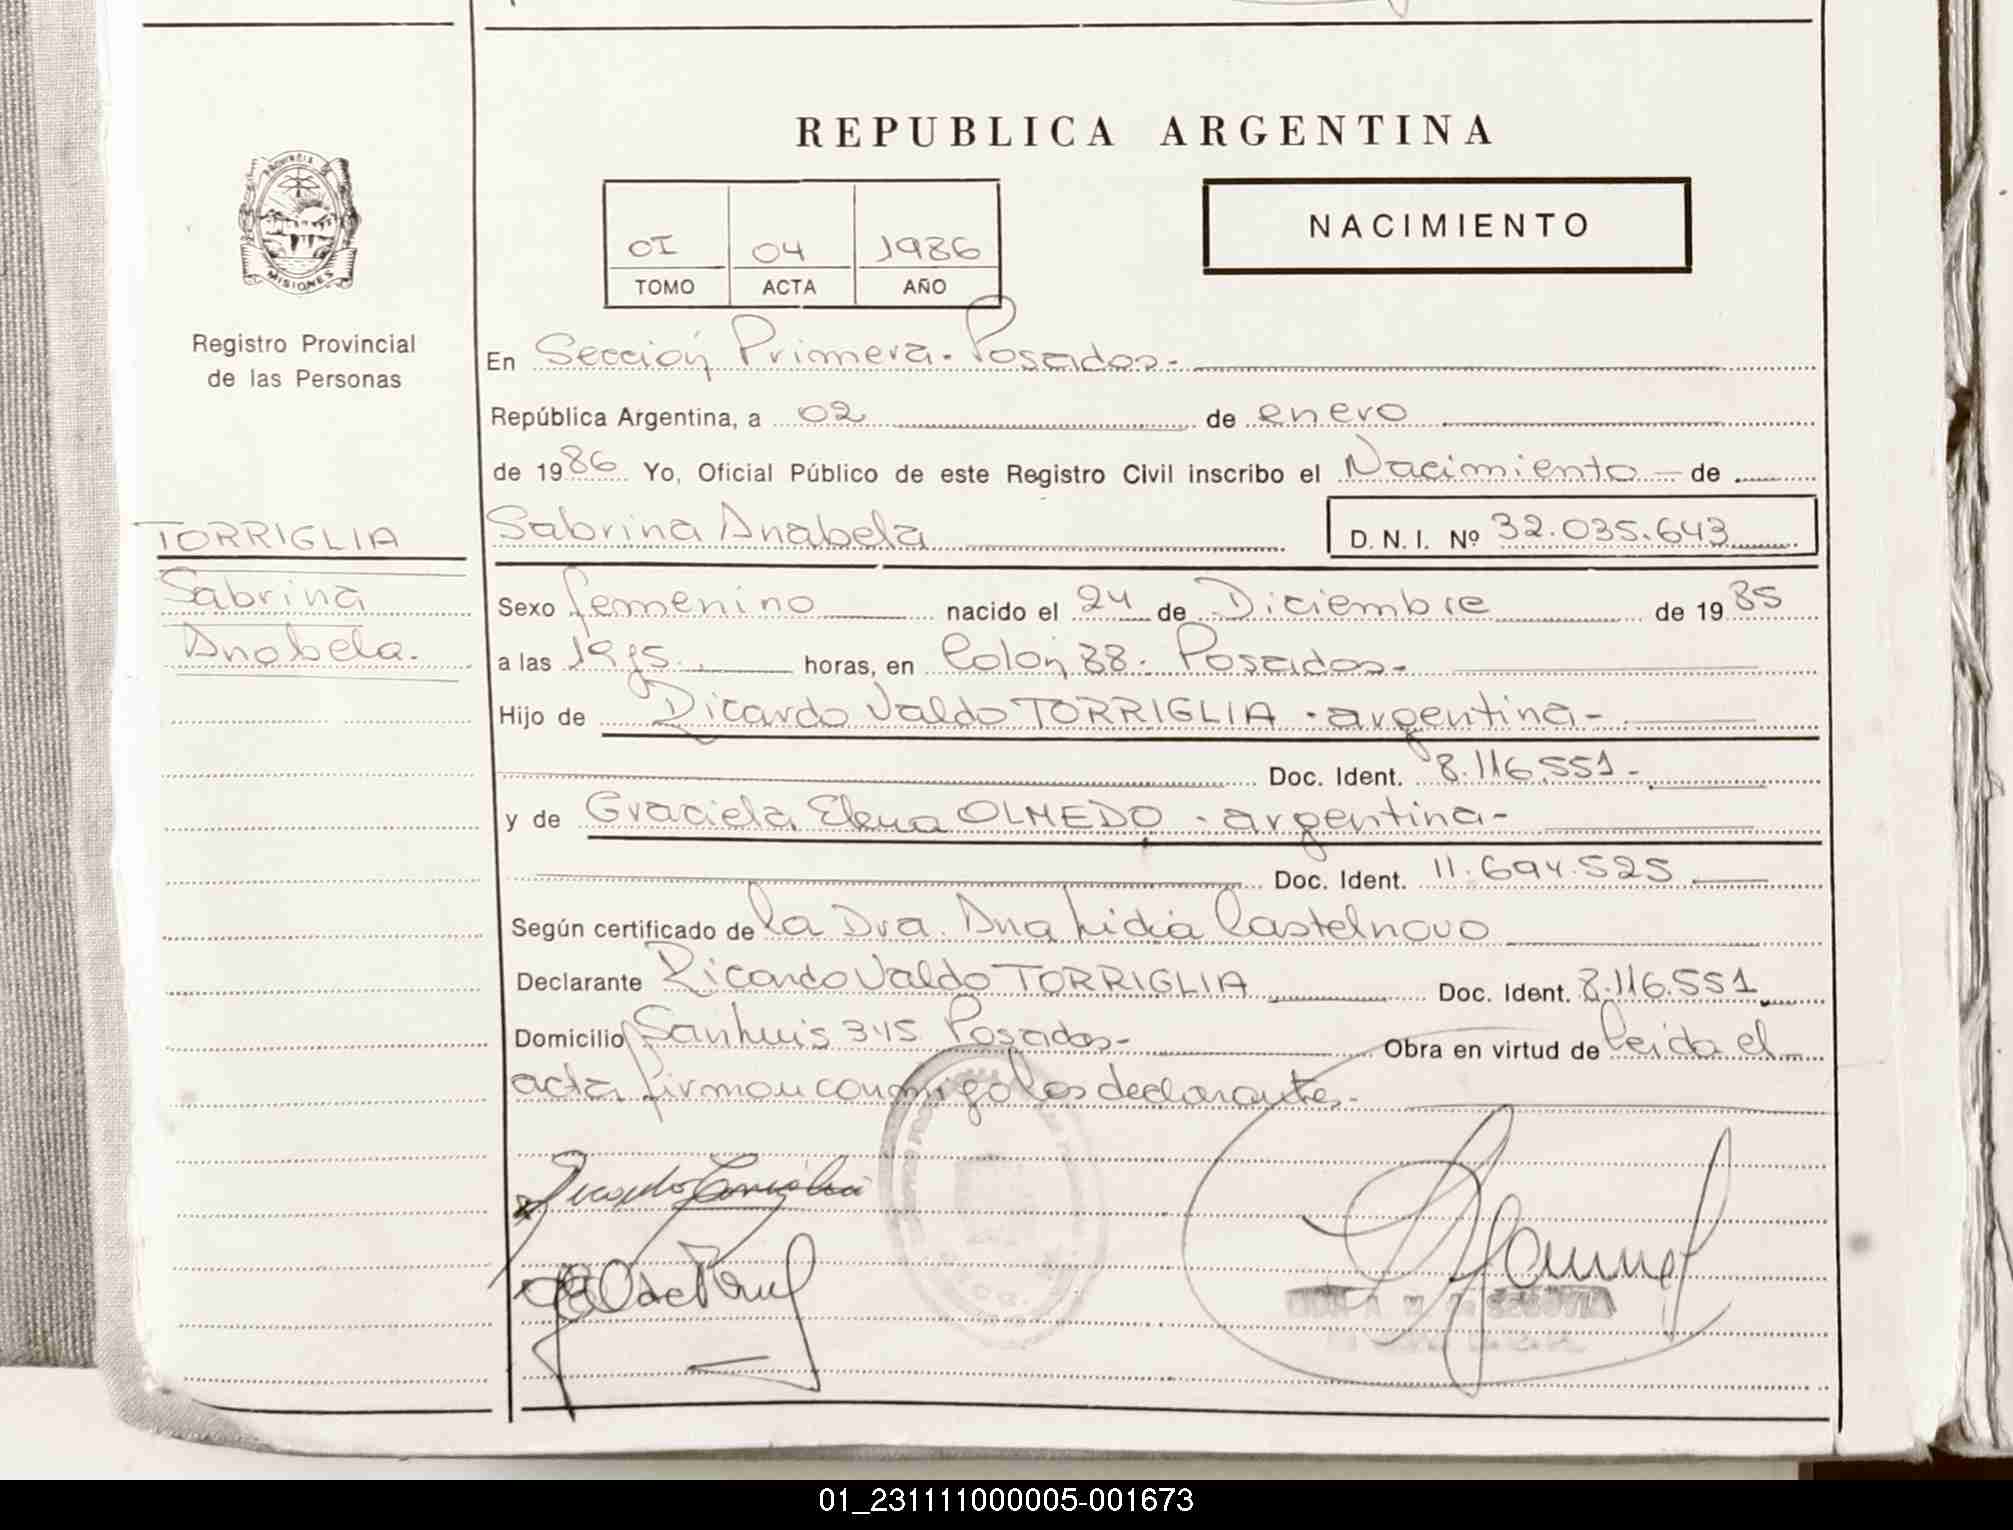 REPUBLICA ARGENTINA
PROVINCIA DE
MISIONES
Registro Provincial
de las Personas
01 04 1986
TOMO ACTA AÑO
NACIMIENTO
En Sección Primera - Posadas -
República Argentina, a 02 de enero
de 1986 Yo, Oficial Público de este Registro Civil inscribo el Nacimiento - de
TORRIGLIA
Sabrina
Anabela.
Sabrina Anabela D. N. I. Nº 32.035.643
Sexo femenino nacido el 24 de Diciembre de 1985
a las 19,15 horas, en Colón 38 - Posadas -
Hijo de Ricardo Valdo TORRIGLIA - argentina -
Doc. Ident. 8.116.551 -
y de Graciela Elena OLMEDO - argentina -
Doc. Ident. 11.694.525
Según certificado de la Dra. Ana Lidia Castelnovo
Declarante Ricardo Valdo TORRIGLIA Doc. Ident. 8.116.551
Domicilio San Luis 345 Posadas - Obra en virtud de leida el
acta firman conmigo los declarantes. -
01_231111000005-001673